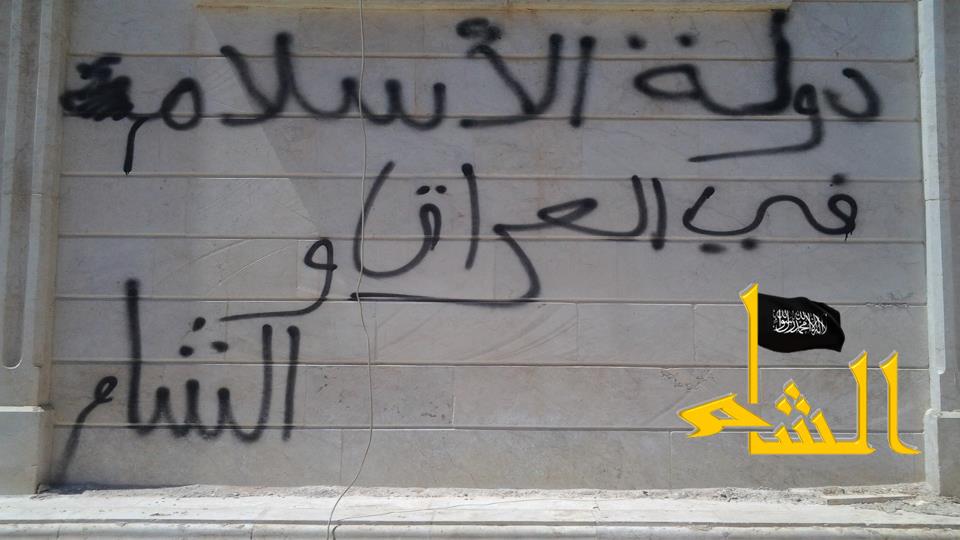 دولة الأسلامية
في العراق و
الشام
الشام
لا إله إلا الله محمد رسول الله